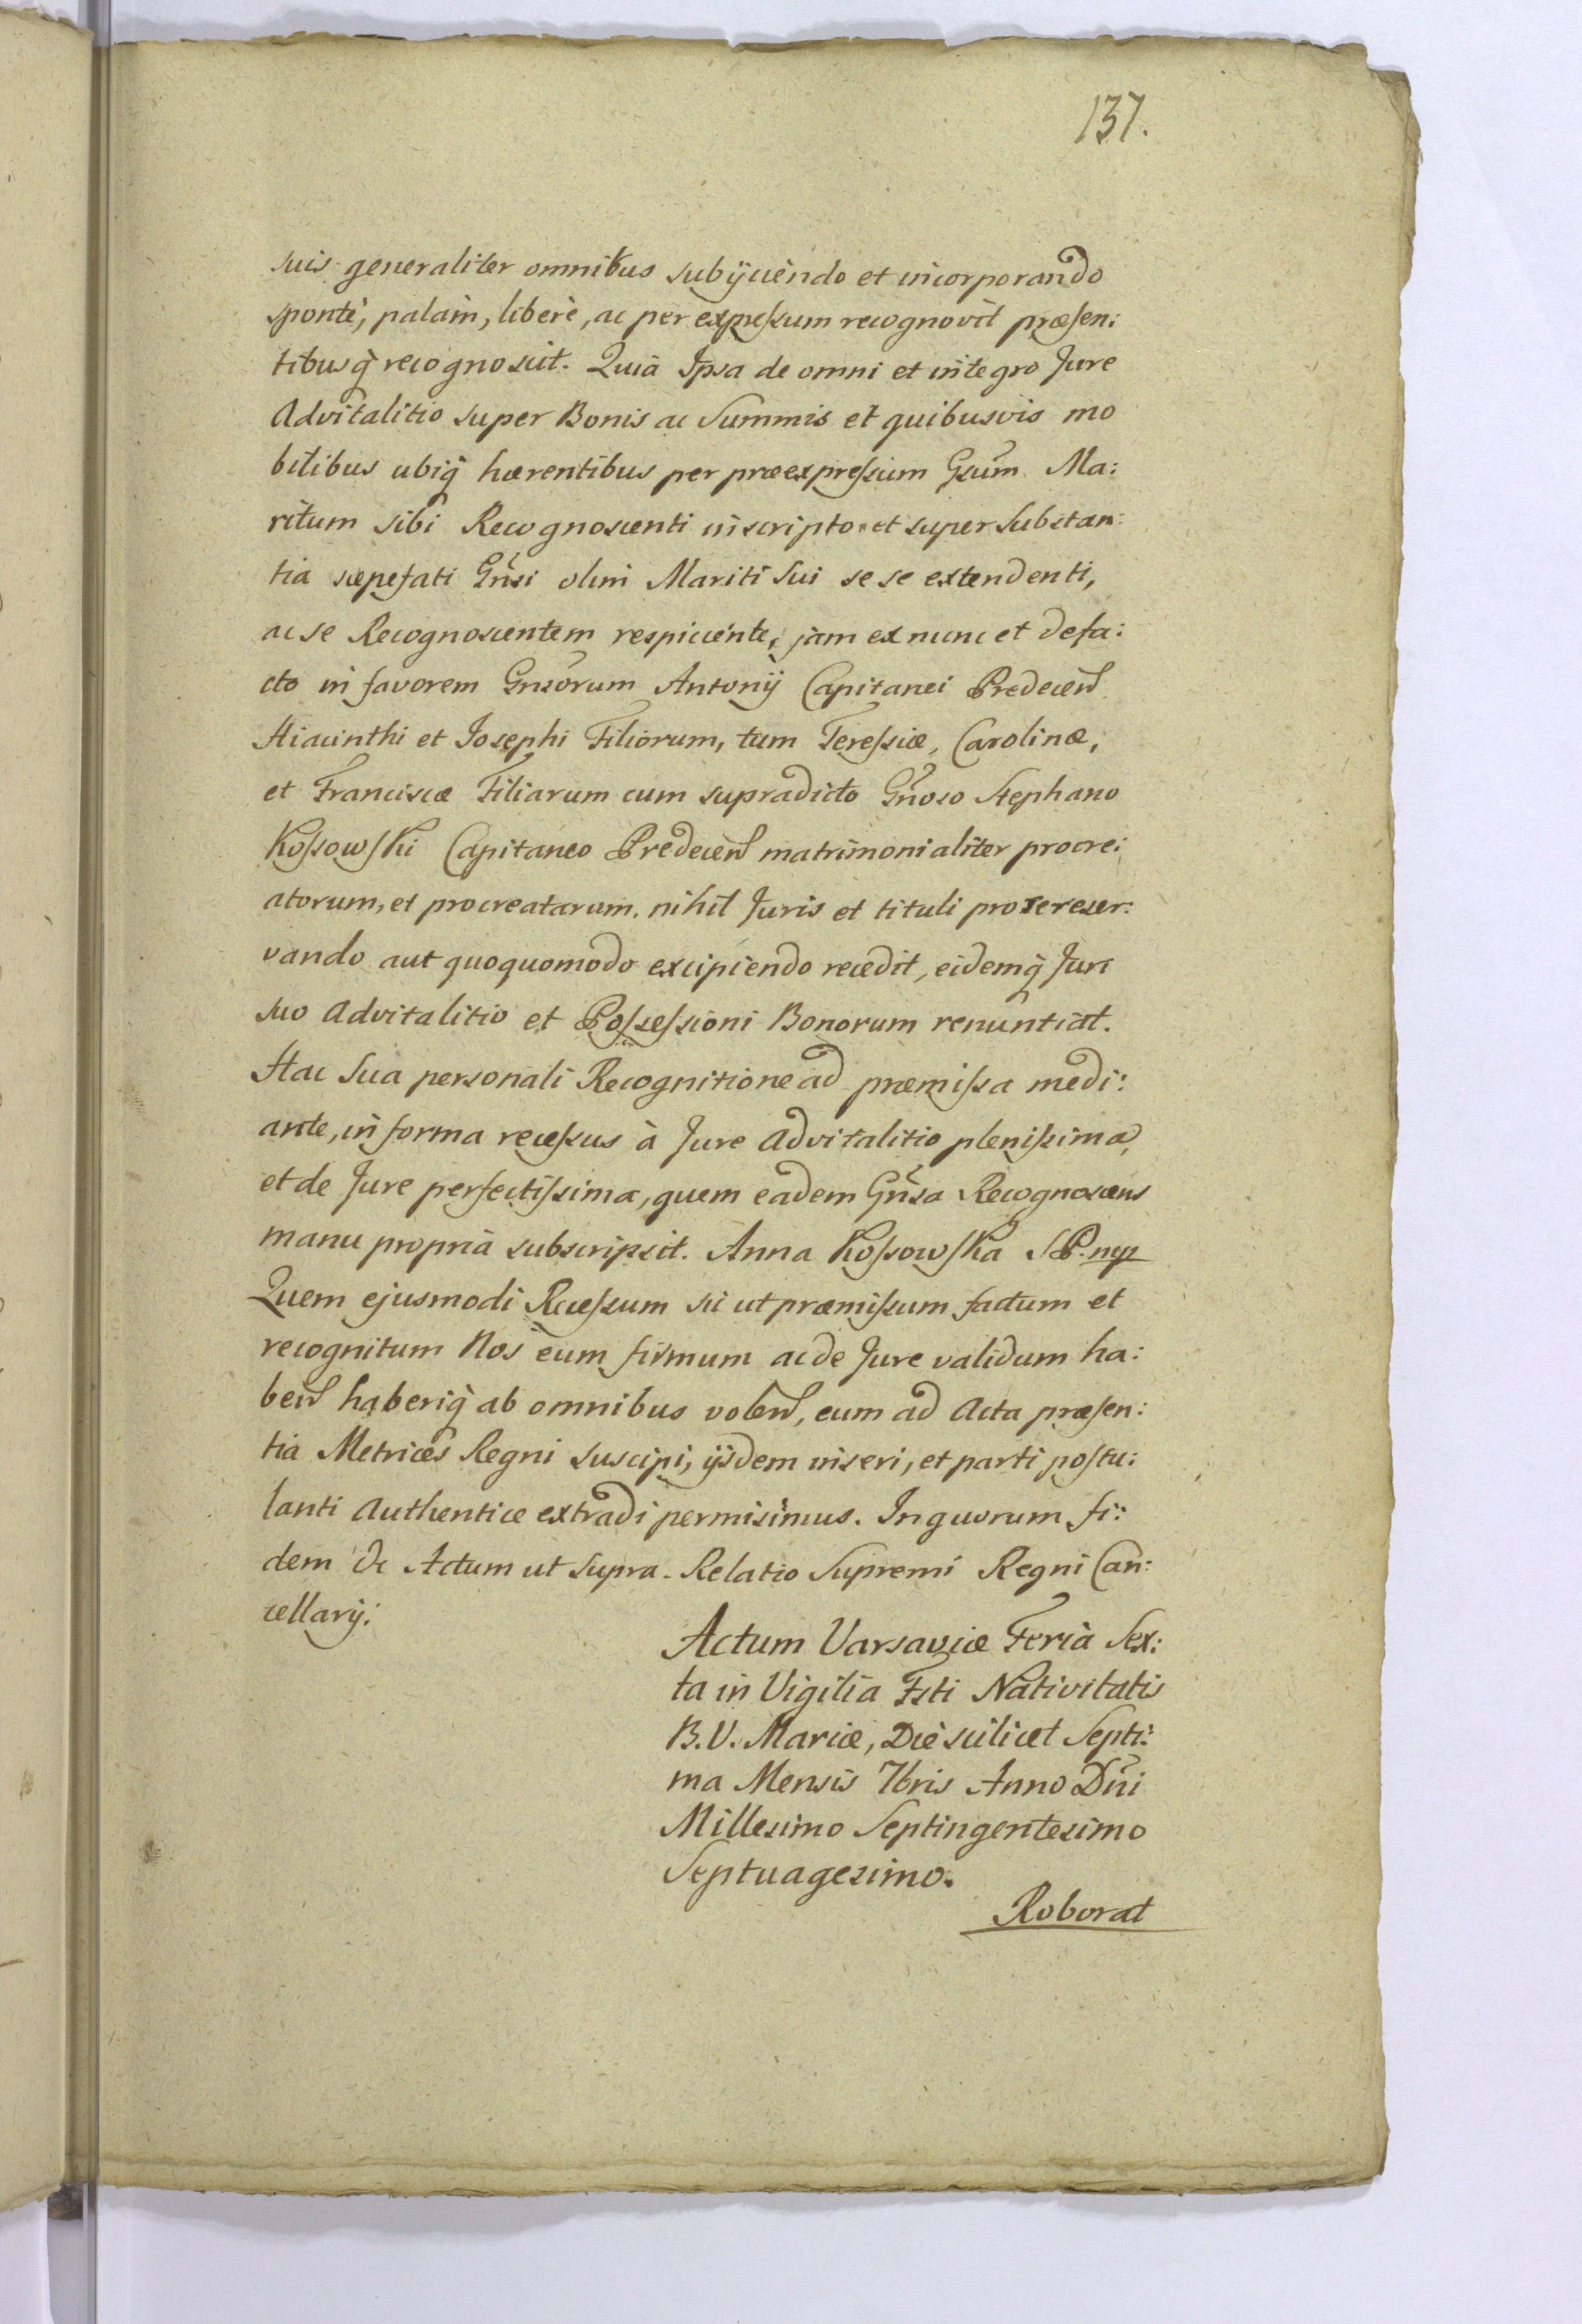 137.
suis generaliter omnibus subÿciendo et incorporando
sponte, palam, libere, ac per expressum recognovit præsen:
tibusq̃ recognoscit. Quia Ipsa de omni et integro Jure
Advitalitio super Bonis ac Summis et quibusvis mo
bilibus ubiq̃ hærentibus per præexpressum Gsum̃ Ma:
ritum sibi Recognoscenti inscripto et super Substan:
tia sæpefati Gñsi olim Mariti Sui se se extendenti,
ac se Recognoscentem respiciente, jam ex nunc et defa:
cto in favorem Gnsõrum Antonÿ Capitanei Predecen̄
Hiacinthi et Josephi Filiorum, tum Teressiæ, Carolinæ,
et Franciscæ Filiarum cum supradicto Gñoso Stephano
Kossowski Capitaneo Predecen̄ matrimonialiter procre:
atorum, et procreatarum, nihil Juris et tituli pro se reser:
vando aut quoquomodo excipiendo recedit, eidemq̃ Juri
suo Advitalitio et Possessioni Bonorum renuntiat.
Hac Sua personali Recognitione ad præmissa medi:
ante, in forma recessus à Jure Advitalitio plenissima,
et de Jure perfectissima, quem eadem Gñsa Recognoscens
manu propria subscripsit. Anna Kossowska SP. mp
Quem ejusmodi Recessum sic ut præmissum factum et
recognitum Nos eum firmum ac de Jure validum ha:
ben̄ haberiq̃ ab omnibus volen̄, eum ad Acta præsen:
tia Metrices Regni suscipi, ÿsdem inseri, et parti postu:
lanti Authentice extradi permisimus. In quorum fi:
dem &c Actum ut supra. Relatio Supremi Regni Can:
cellarÿ.
Actum Varsaviæ Feria Sex:
ta in Vigilia Fsti Nativitatis
B. V. Mariæ, Die scilicet Septi:
ma Mensis 7bris Anno Dñi
Millesimo Septingentesimo
Septuagesimo.
Roborat